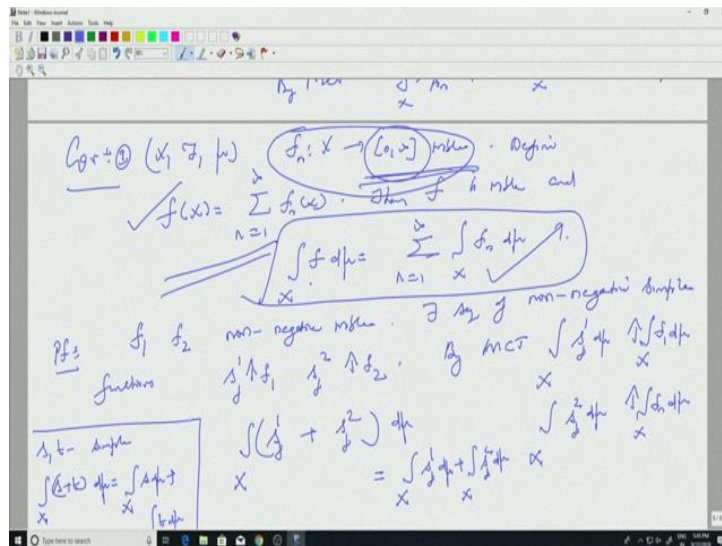 Note1 - Windows Journal
File Edit View Insert Actions Tools Help
Cor: ① (X, F, μ) f_n: X → [0, ∞] mble. Define
f(x) = ∑_{n=1}^{∞} f_n(x). Then f is mble and
∫_X f dμ = ∑_{n=1}^{∞} ∫_X f_n dμ.
Pf: f_1 f_2 non-negative mble. ∃ seq of non-negative simple
functions s_j^1 ↑ f_1 s_j^2 ↑ f_2. By MCT ∫_X s_j^1 dμ ↑ ∫_X f_1 dμ
∫_X s_j^2 dμ ↑ ∫_X f_2 dμ
s, t - simple
∫_X (s+t) dμ = ∫_X s dμ + ∫ t dμ
∫_X (s_j^1 + s_j^2) dμ
= ∫_X s_j^1 dμ + ∫_X s_j^2 dμ
Type here to search
ENG 5:45 PM